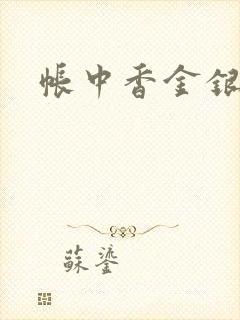 帳中香金銀
蘇鎏